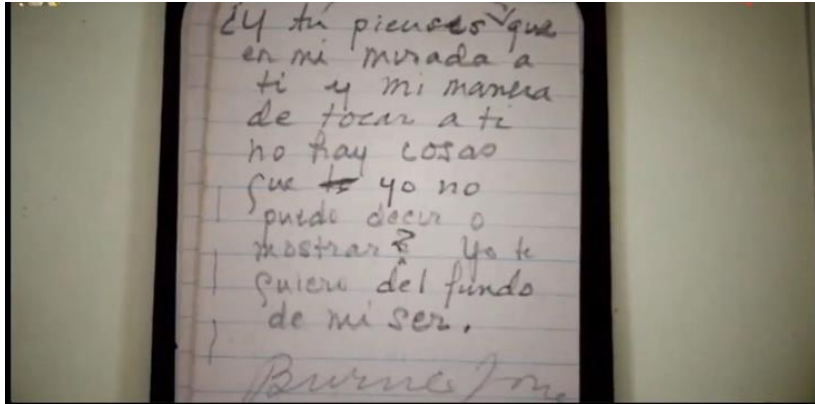 ¿Y tú pienses que
en mi mirada a
ti y mi manera
de tocar a ti
no hay cosas
que te yo no
puedo decir o
mostrar? Yo te
quiero del fundo
de mi ser.
Burne Jone